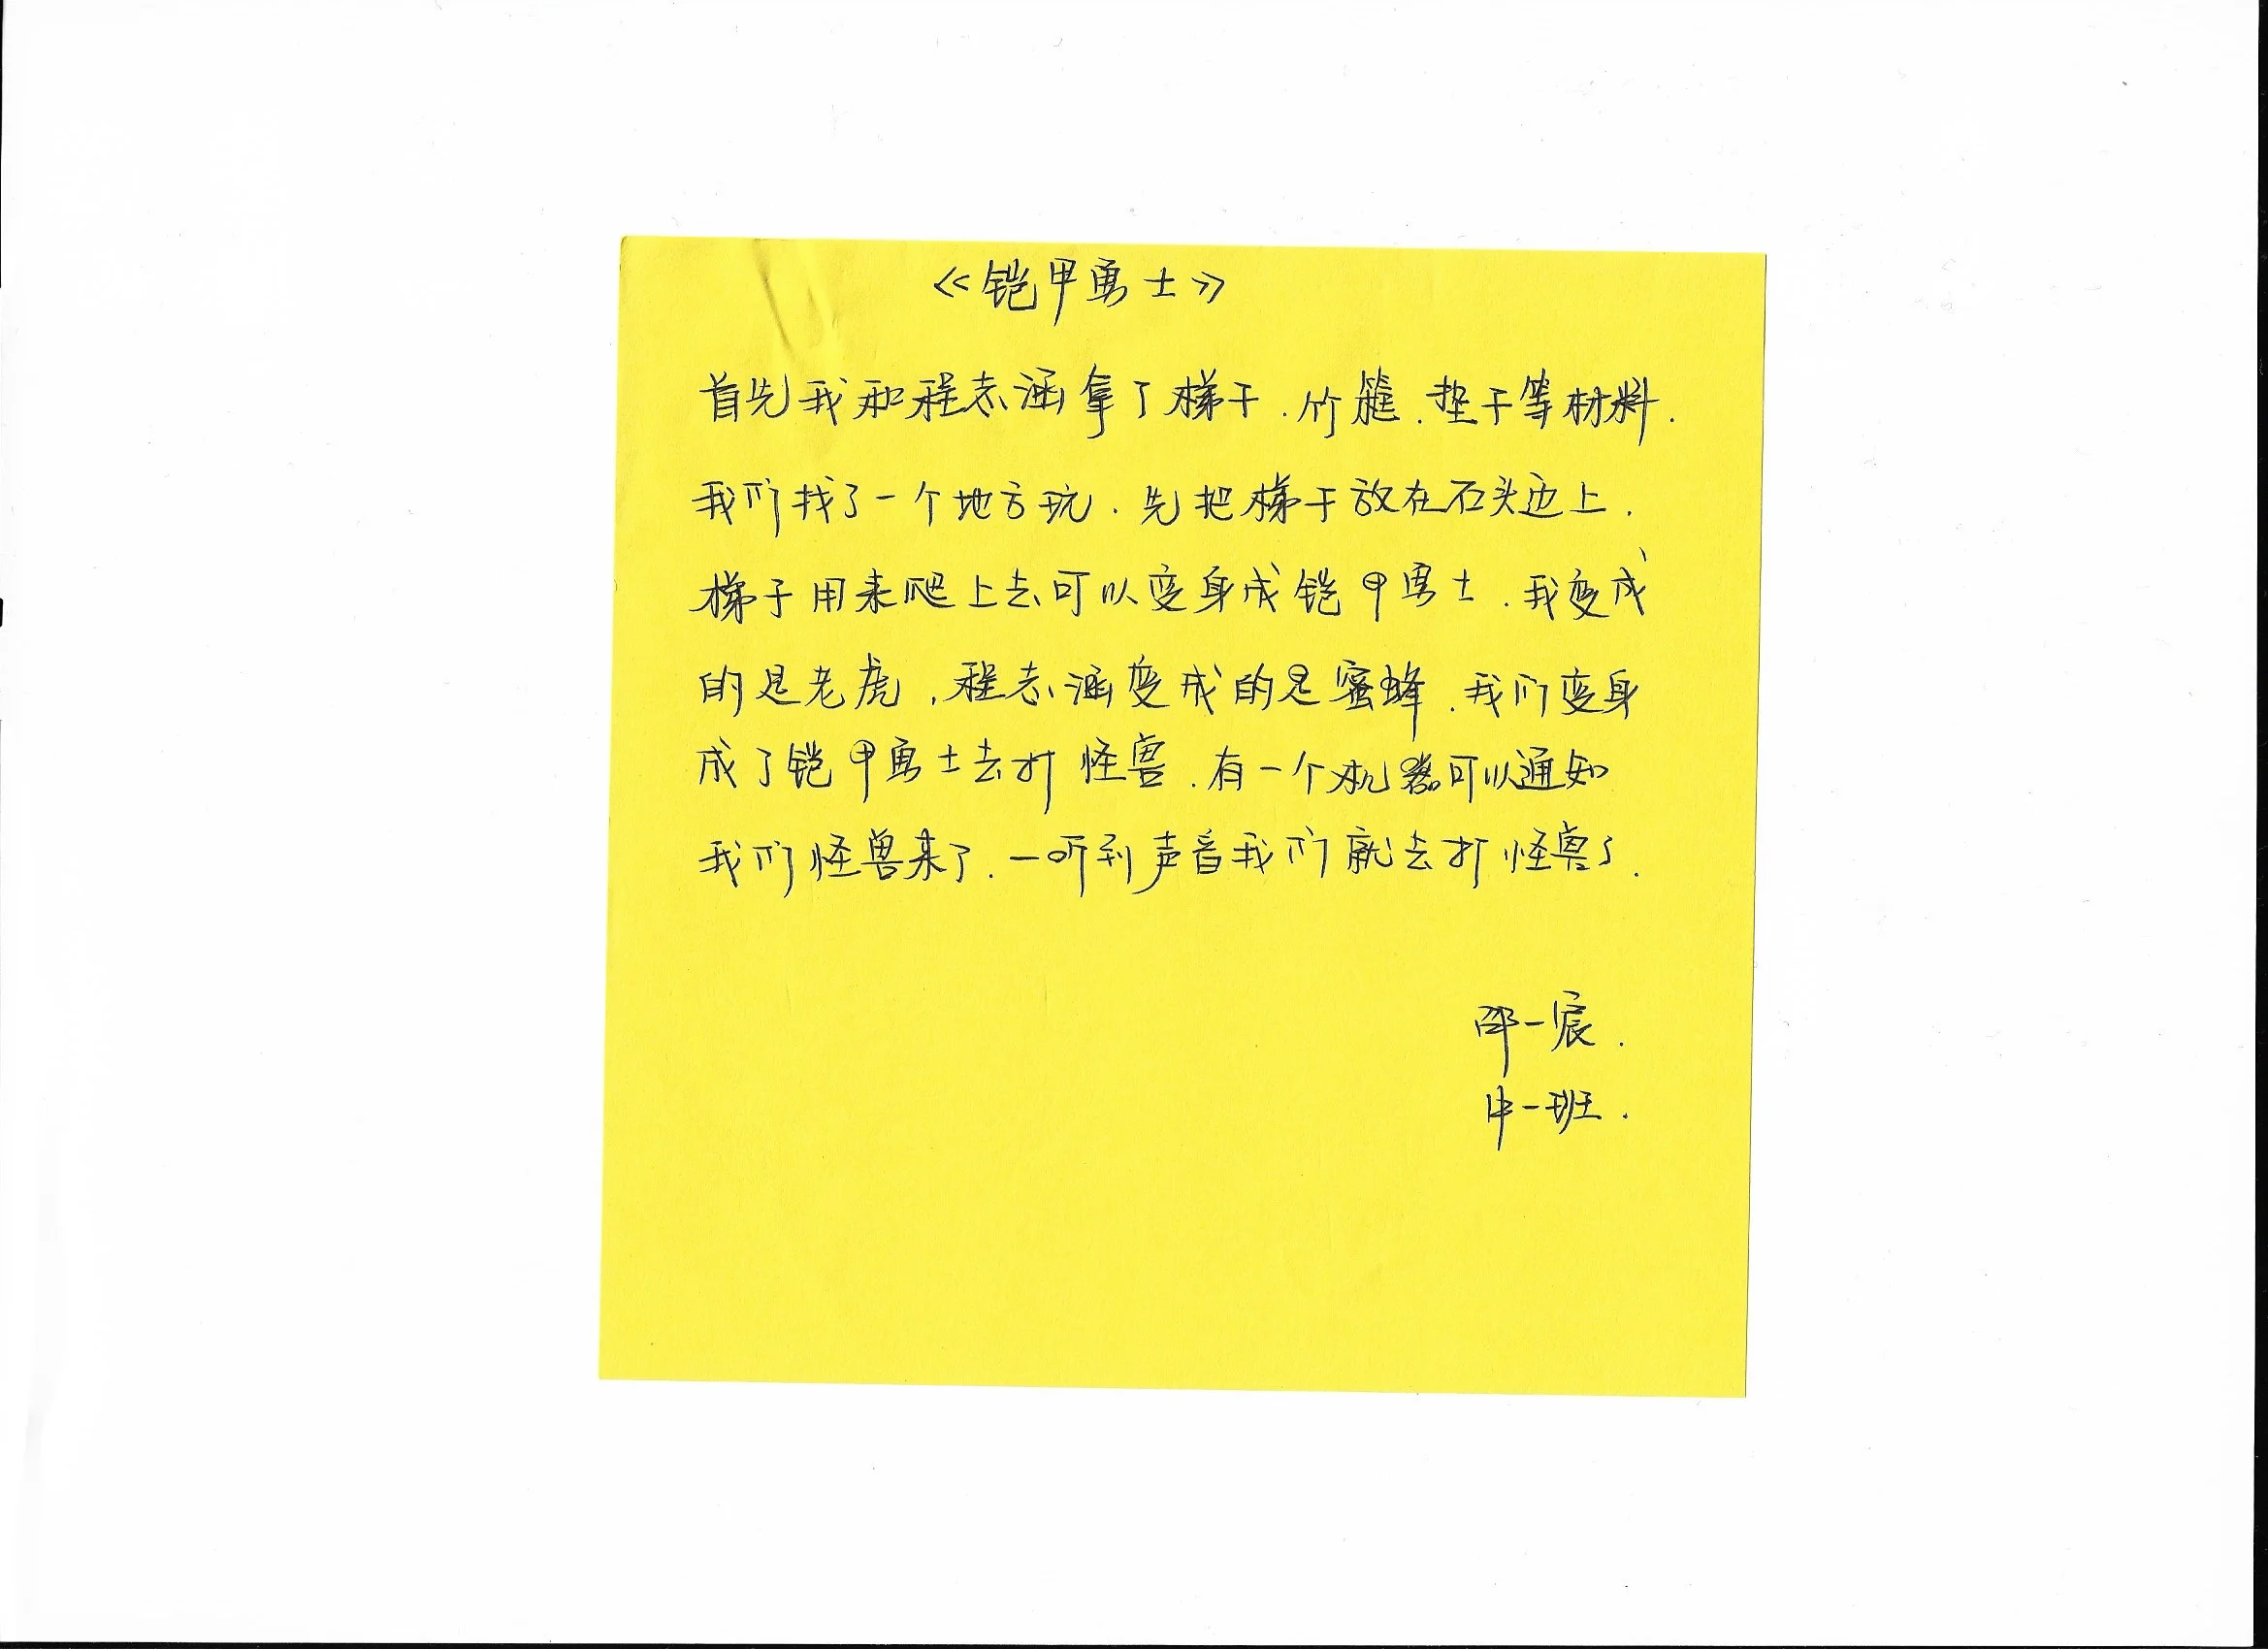 《铠甲勇士》
首先我和程志涵拿了梯子.竹篓.垫子等材料.
我们找了一个地方玩.先把梯子放在石头边上.
梯子用来爬上去可以变身成铠甲勇士.我变成
的是老虎,程志涵变成的是蜜蜂.我们变身
成了铠甲勇士去打怪兽.有一个机器可以通知
我们怪兽来了.一听到声音我们就去打怪兽了.
邵一宸.
中一班.